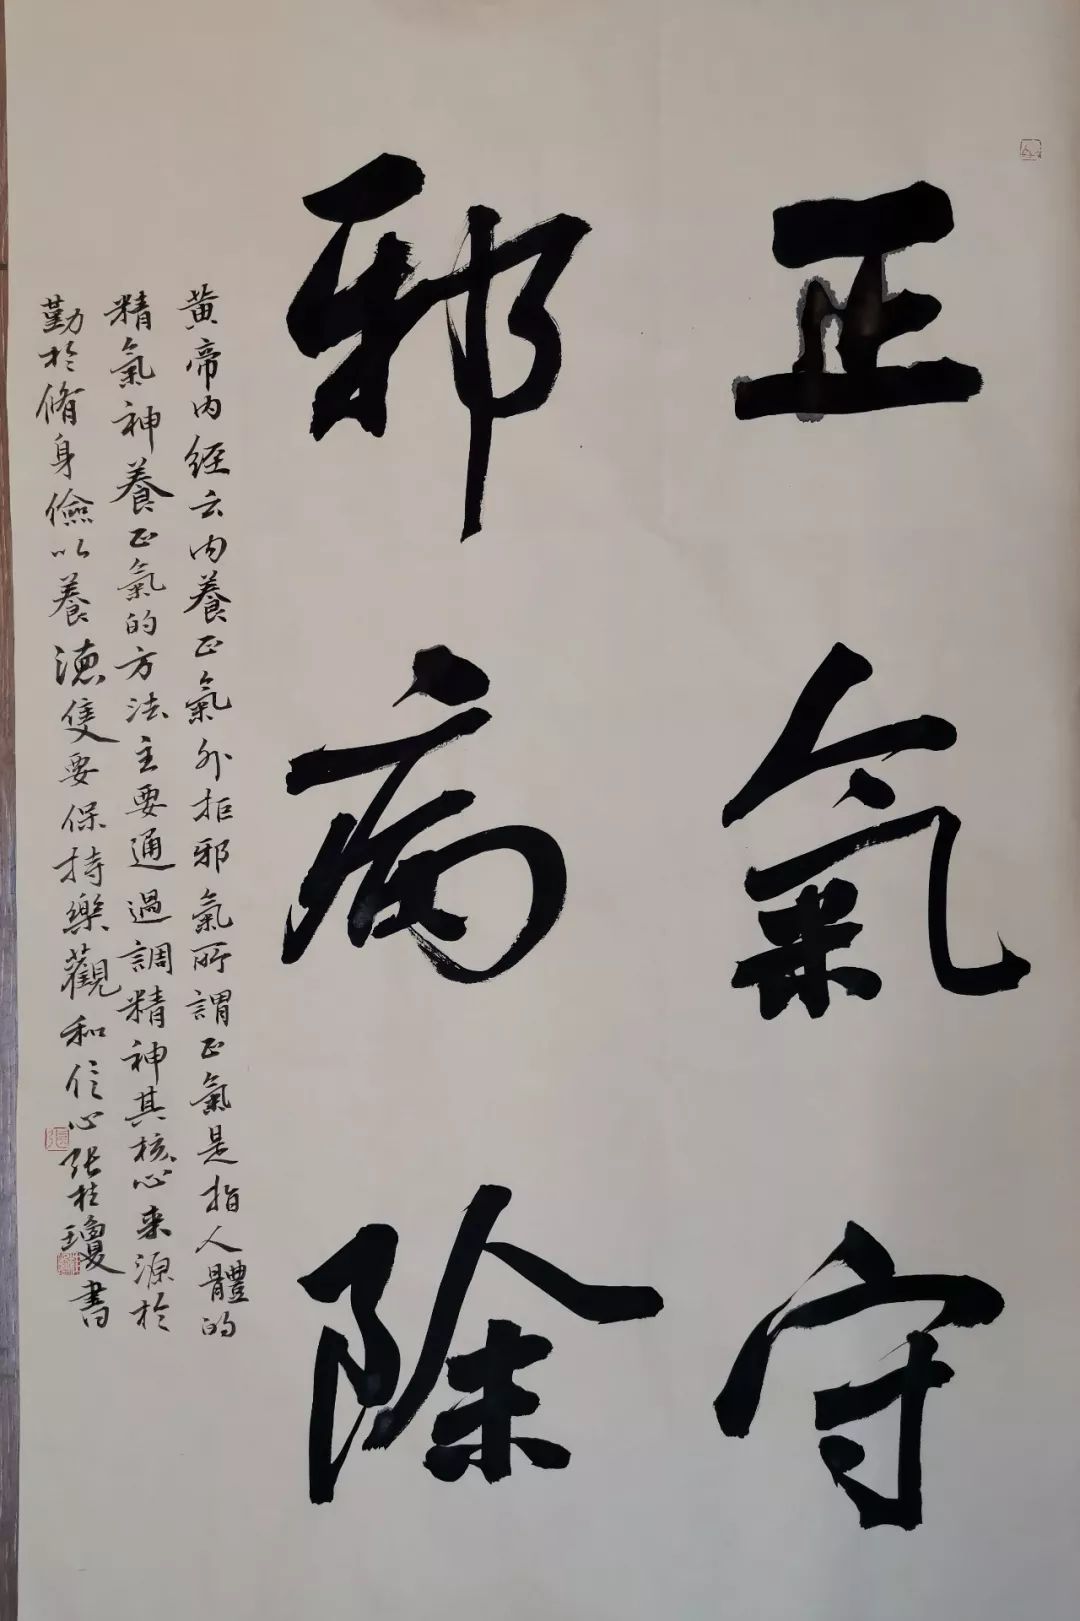 正氣守
邪病除
黃帝内經云内養正氣外拒邪氣所謂正氣是指人體的
精氣神養正氣的方法主要通過調精神其核心来源於
勤於脩身儉以養德隻要保持樂觀和信心張桂瓊書